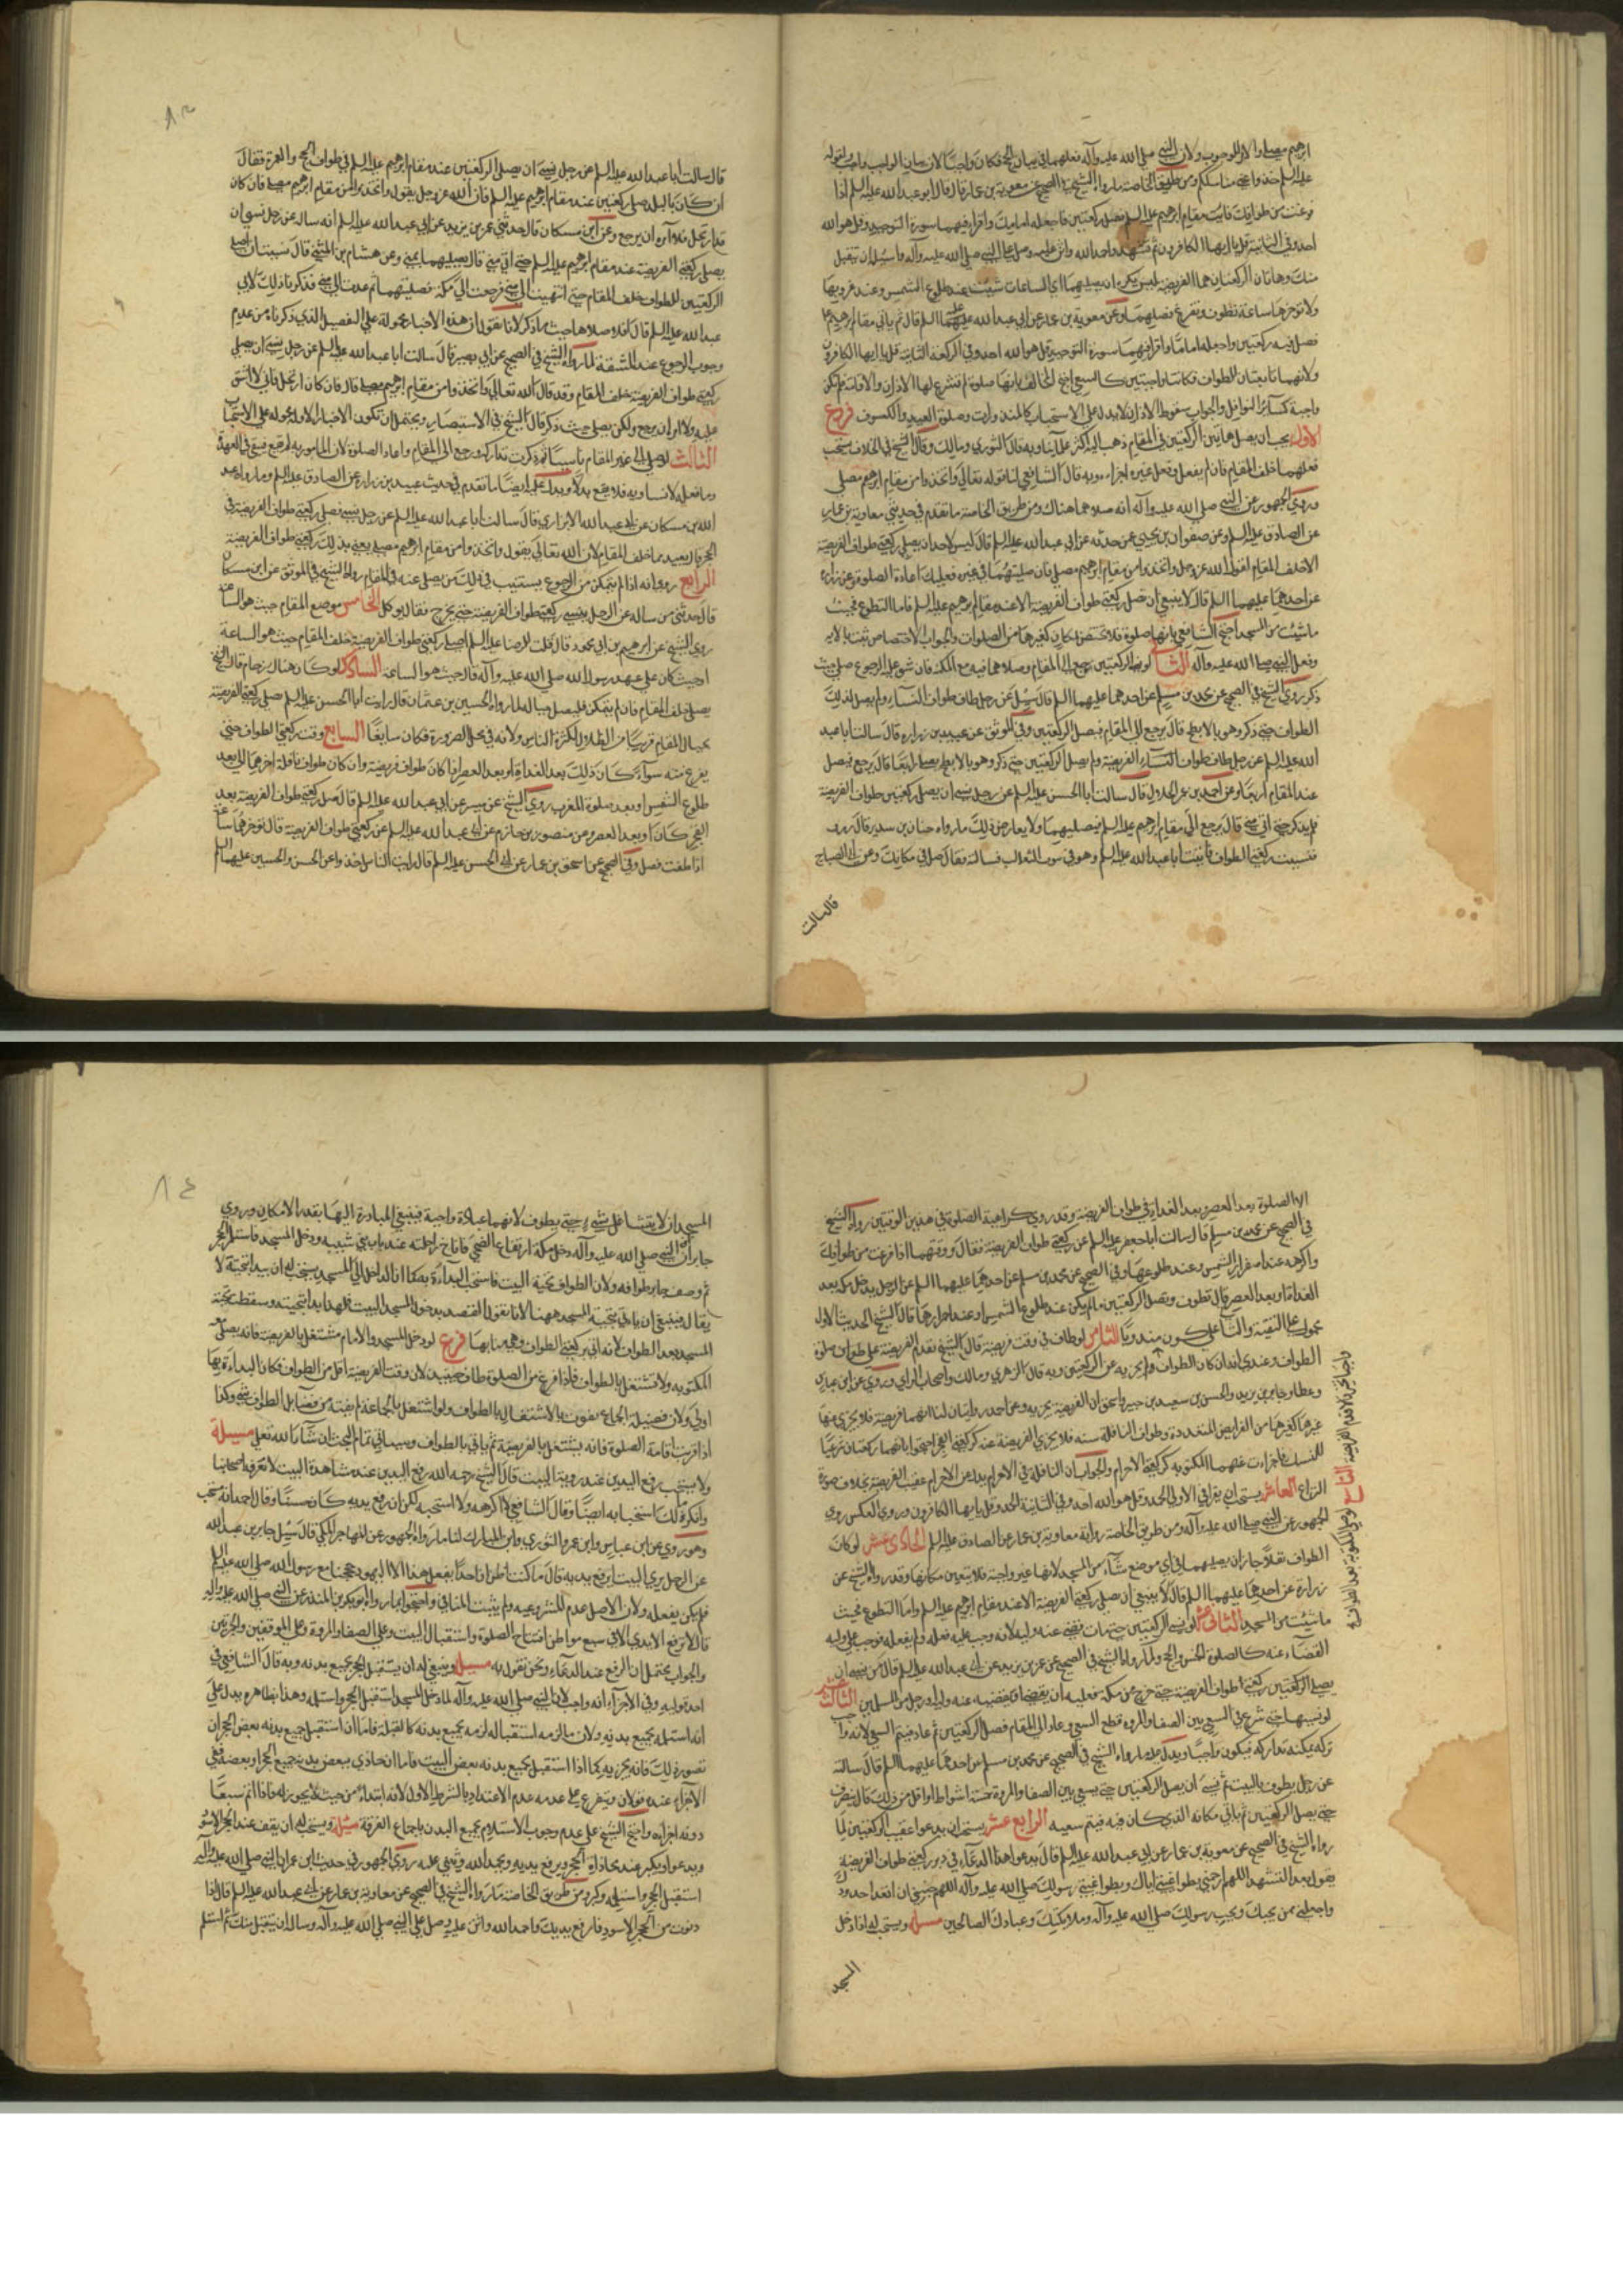 ابرهيم مصلى والامر للوجوب ولان النبي صلى الله عليه وآله فعلهما في بيان الحج فكان واجبا لان بيان الواجب واجب لقوله
عليه السلم خذوا عني مناسككم ومن طريق الخاصة ما رواه الشيخ في الصحيح عن معوية بن عمار قال قال ابو عبد الله عليه السلم اذا
فرغت من طوافك فائت مقام ابرهيم عليه السلم فصل ركعتين فاجعله امامك واقرا فيهما سورة التوحيد قل هو الله
احد وفي الثانية قل يا ايها الكافرون ثم تشهد واحمد الله واثن عليه وصل على النبي صلى الله عليه وآله واسئله ان يتقبل
منك وهاتان الركعتان هما الفريضة ليس يكره ان يصليهما اي الساعات شئت عند طلوع الشمس وعند غروبها
ولا تؤخرها ساعة تطوف وتفرغ فصلهما وعن معوية بن عمار عن ابي عبد الله عليه السلم قال ثم ياتي مقام ابرهيم
فصل فيه ركعتين واجعله اماما واقرا فيهما سورة التوحيد قل هو الله احد وفي الركعة الثانية قل يا ايها الكافرون
ولانهما تابعتان للطواف فكانتا واجبتين كالسعي احتج المخالف بانها صلوة لم تشرع لها الاذان والاقامة فلم تكن
واجبة كسائر النوافل والجواب سقوط الاذان لا يدل على الاستحباب كالمنذورات وصلوة العيد والكسوف فروع
الاول يجب ان يصلي هاتين الركعتين في المقام ذهب اليه اكثر علمآئنا وبه قال الثوري ومالك وقال الشيخ في الخلاف يستحب
فعلهما خلف المقام فان لم يفعل وفعل في غيره اجزاه وبه قال الشافعي لنا قوله تعالى واتخذوا من مقام ابرهيم مصلى
وروى الجمهور عن النبي صلى الله عليه وآله انه صلاهما هناك ومن طريق الخاصة ما تقدم في حديثي معاوية بن عمار
عن الصادق عليه السلم وعن صفوان بن يحيى عن حدثه عن ابي عبد الله عليه السلم قال ليس لاحد ان يصلي ركعتي طواف الفريضة
الا خلف المقام لقول الله عز وجل واتخذوا من مقام ابرهيم مصلى فان صليتهما في غيره فعليك اعادة الصلوة وعن زرارة
عن احدهما عليهما السلم قال لا ينبغي ان تصلي ركعتي طواف الفريضة الا عند مقام ابرهيم عليه السلم فاما التطوع فحيث
ما شئت من المسجد احتج الشافعي بانها صلوة فلا تختص بمكان كغيرها من الصلوات والجواب الاختصاص ثبت بالاية
وفعل النبي صلى الله عليه وآله الثاني لو نسي الركعتين رجع الى المقام وصلاهما فيه مع المكنة فان شق عليه الرجوع صلى حيث
ذكر روى الشيخ في الصحيح عن محمد بن مسلم عن احدهما عليهما السلم قال سئل عن رجل طاف طواف النساء ولم يصل لذلك
الطواف حتى ذكر وهو بالابطح قال يرجع الى المقام فيصل الركعتين وفي الموثق عن عبيد بن زرارة قال سالت ابا عبد
الله عليه السلم عن رجل طاف طواف الفريضة ولم يصل الركعتين حتى ذكر وهو بالابطح يصلي اربعا قال يرجع فيصل
عند المقام اربعا وعن احمد بن عمر الحلال قال سالت ابا الحسن عليه السلم عن رجل نسي ان يصلي ركعتين طواف الفريضة
فلم يذكر حتى اتى منى قال يرجع الى مقام ابرهيم عليه السلم فيصليهما ولا يعارض ذلك ما رواه حنان بن سدير قال زرت
فنسيت ركعتي الطواف فاتيت ابا عبد الله عليه السلم وهو في قرن الثعالب فسالته فقال صل في مكانك وعن ابي الصباح
قال سالت
قال سالت ابا عبد الله عليه السلم عن رجل نسي ان يصلي الركعتين عند مقام ابرهيم عليه السلم في طواف الحج والعمرة فقال
ان كان بالبلد صلى ركعتين عند مقام ابرهيم عليه السلم فان الله عز وجل يقول واتخذوا من مقام ابرهيم مصلى فان كان
قد ارتحل فلا آمره ان يرجع وعن ابن مسكان قال حدثني عمر بن يزيد عن ابي عبد الله عليه السلم انه ساله عن رجل نسي ان
يصلي ركعتي الفريضة عند مقام ابرهيم عليه السلم حتى اتى منى قال يصليهما بمنى وعن هشام بن المثنى قال نسيت ان اصلي
الركعتين للطواف خلف المقام حتى انتهيت الى منى فرجعت الى مكة فصليتهما ثم عدت الى منى فذكرنا ذلك لابي
عبد الله عليه السلم قال افلا صلاهما حيث ما ذكر لانا نقول ان هذه الاخبار محمولة على التفصيل الذي ذكرناه من عدم
وجوب الرجوع عند المشقة لما رواه الشيخ في الصحيح عن ابي بصير قال سالت ابا عبد الله عليه السلم عن رجل نسي ان يصلي
ركعتي طواف الفريضة خلف المقام وقد قال الله تعالى واتخذوا من مقام ابرهيم مصلى قال فان كان ارتحل فاني لا اشق
عليه ولا امره ان يرجع ولكن يصلي حيث ذكر قال الشيخ في الاستبصار ويحتمل ان تكون الاخبار الاولة محمولة على الاستحباب
الثالث لو صلى في غير المقام ناسيا ثم ذكر تدارك ورجع الى المقام واعاد الصلوة لان المامور به لم يقع فيبقى في العهدة
وما فعله لا يساويه فلا يقع بدلا ويدل عليه ايضا ما تقدم في حديث عبيد بن زرارة عن الصادق عليه السلم وما رواه عبد
الله بن مسكان عن ابي عبد الله الابزاري قال سالت ابا عبد الله عليه السلم عن رجل نسي فصلى ركعتي طواف الفريضة في
الحجر قال يعيدهما خلف المقام لان الله تعالى يقول واتخذوا من مقام ابرهيم مصلى يعني بذلك ركعتي طواف الفريضة
الرابع روي انه اذا لم يتمكن من الرجوع يستنيب في ذلك من يصلي عنه في المقام رواه الشيخ في الموثق عن ابن مسكان
قال حدثني من ساله عن الرجل ينسى ركعتي طواف الفريضة حتى يخرج فقال يوكل الخامس موضع المقام حيث هو الساعة
روى الشيخ عن ابرهيم بن ابي محمود قال قلت للرضا عليه السلم اصلي ركعتي طواف الفريضة خلف المقام حيث هو الساعة
او حيث كان على عهد رسول الله صلى الله عليه وآله قال حيث هو الساعة السادس لو كان هناك زحام قال الشيخ
يصلي خلف المقام فان لم يتمكن فليصل حياله لما رواه الحسين بن عثمان قال رايت ابا الحسن عليه السلم صلى ركعتي الفريضة
بحيال المقام قريبا من الظلال لكثرة الناس ولانه في محل الضرورة فكان سايغا السابع وقت ركعتي الطواف حين
يفرغ منه سوآء كان ذلك بعد الغداة او بعد العصر اذا كان طواف فريضة وان كان طواف نافلة اخرهما الى بعد
طلوع الشمس او بعد صلوة المغرب روى الشيخ عن ميسر عن ابي عبد الله عليه السلم قال صل ركعتي طواف الفريضة بعد
الفجر كان او بعد العصر وعن منصور بن حازم عن ابي عبد الله عليه السلم عن ركعتي طواف الفريضة قال لا تؤخرهما ساعة
اذا طفت فصل وفي الصحيح عن اسحق بن عمار عن ابي الحسن عليه السلم قال ما رايت الناس اخذوا عن الحسن والحسين عليهما السلم
الا الصلوة بعد العصر وبعد الغداة في طواف الفريضة وقد روي كراهية الصلوة في هذين الوقتين رواه الشيخ
في الصحيح عن محمد بن مسلم قال سالت ابا جعفر عليه السلم عن ركعتي طواف الفريضة فقال وقتهما اذا فرغت من طوافك
واكرهه عند اصفرار الشمس وعند طلوعها وفي الصحيح عن محمد بن مسلم عن احدهما عليهما السلم عن الرجل يدخل مكة بعد
الغداة او بعد العصر قال يطوف ويصل الركعتين ما لم يكن عند طلوع الشمس او عند احمرارها قال الشيخ الحديث الاول
محمول على التقية والثاني على كون مندوبا الثامن لو طاف في وقت فريضة قال الشيخ تقدم الفريضة على طواف صلوة
الطواف وعندي انه ان كان الطواف واجبا لم يجزيه عن الركعتين وبه قال الزهري ومالك واصحاب الراي وروي عن ابن عباس
وعطا وجابر بن يزيد والحسن بن سعيد بن جبير واسحق ان الفريضة تجزيه وعن احمد روايتان لنا انهما فريضة فلا يجزي عنها
غيرها كغيرها من الفرايض المتعددة وطواف النافلة سنة فلا تجزي الفريضة عنه كركعتي الفجر احتجوا بانهما ركعتان شرعتا
للنسك فاجزات عنهما المكتوبة كركعتي الاحرام والجواب ان النافلة في الاحرام بدل عن الاحرام عقيب الفريضة بخلاف صورة
النزاع العاشر يستحب ان يقرا في الاولى الحمد وقل هو الله احد وفي الثانية الحمد وقل يا ايها الكافرون وروي العكس روى
الجمهور عن النبي صلى الله عليه وآله ومن طريق الخاصة رواية معاوية بن عمار عن الصادق عليه السلم الحادى عشر لو كان
الطواف نفلا جاز ان يصليهما في اي موضع شآء من المسجد لانها غير واجبة فلا يتعين مكانها وقد رواه الشيخ عن
زرارة عن احدهما عليهما السلم قال لا ينبغي ان تصلي ركعتي الفريضة الا عند مقام ابرهيم عليه السلم واما التطوع فحيث
ما شئت من المسجد الثانى عشر لو نسي الركعتين حتى مات قضى عنه وليه لانه وجب عليه فعله ولم يفعله فوجب على وليه
القضاء عنه كالصلوة الخمس والحج ولما رواه الشيخ في الصحيح عن عمر بن يزيد عن ابي عبد الله عليه السلم قال من نسي ان
يصلي الركعتين ركعتي طواف الفريضة حتى خرج من مكة فعليه ان يقضي او يقضيه عنه وليه او رجل من المسلمين الثالث عشر
لو نسيها حتى شرع في السعي بين الصفا والمروة قطع السعي وعاد الى المقام فصلى الركعتين ثم عاد فيتم السعي لانه واجب
تركه يمكنه تداركه فيكون واجبا ويدل عليه ما رواه الشيخ في الصحيح عن محمد بن مسلم عن احدهما عليهما السلم قال سالته
عن رجل يطوف بالبيت ثم نسي ان يصلي الركعتين حتى يسعى بين الصفا والمروة خمسة اشواط او اقل من ذلك قال ينصرف
حتى يصلي الركعتين ثم ياتي مكانه الذي كان فيه فيتم سعيه الرابع عشر يستحب ان يدعوا عقيب الركعتين لما
رواه الشيخ في الصحيح عن معوية بن عمار عن ابي عبد الله عليه السلم قال يدعوا بهذا الدعاء في دبر ركعتي طواف الفريضة
يقول بعد التشهد اللهم ارحمني بطواعيتي اياك وبطواعيتي رسولك صلى الله عليه وآله اللهم جنبني ان اتعدا حدودك
واجعلني ممن يحبك ويحب رسولك صلى الله عليه وآله وملايكتك وعبادك الصالحين مسئلة ويستحب له اذا دخل
المسجد
التاسع لو صلى المكتوبة بعد الطواف
المسجد ان لا يتشاغل بشيء حتى يطوف لانهما عبادة واجبة فينبغي المبادرة اليها بقدر الامكان وروى
جابر ان النبي صلى الله عليه وآله دخل مكة ارتفاع الضحى فاناخ راحلته عند باب بني شيبة ودخل المسجد فاستلم الحجر
ثم وصف جابر طوافه ولان الطواف تحية البيت فاستحب البدآءة به كما ان الداخل الى المسجد يستحب له ان يبدا بتحيته لا
يقال فينبغي ان ياتي بتحية المسجد ههنا لانا نقول القصد بدخول المسجد البيت فلهذا بدا بتحيته وسقطت تحية
المسجد بعد الطواف لانه اتى بركعتي الطواف وهي نايبها فرع لو دخل المسجد والامام مشتغل بالفريضة فانه يصلي معه
المكتوبة ولا يشتغل بالطواف فاذا فرغ من الصلوة طاف حينئذ لان وقت الفريضة اقل من الطواف فكان البداءة بها
اولى ولان فضيلة الجماعة تفوت بالاشتغال بالطواف ولو اشتغل بالجماعة لم يفته من فضآيل الطواف شيء وكذا
اذا قربت اقامة الصلوة فانه يشتغل بالفريضة ثم ياتي بالطواف وسياتي تمام البحث ان شآء الله تعالى مسئلة
ولا يستحب رفع اليدين عند روية البيت قال الشيخ رحمه الله رفع اليدين عند مشاهدة البيت لا تعرفه اصحابنا
وانكر مالك استحبابه ايضا وقال الشافعي لا اكرهه ولا استحبه لكن ان رفع يديه كان حسنا وقال احمد انه مستحب
وهو روي عن ابن عباس وابن عمر والثوري وابن المبارك لنا ما رواه الجمهور عن المهاجر المكي قال سئل جابر بن عبد الله
عن الرجل يرى البيت ايرفع يديه قال ما كنت اظن ان احدا يفعل هذا الا اليهود حججنا مع رسول الله صلى الله عليه وآله
فلم يكن يفعله ولان الاصل عدم المشروعية ولم يثبت المنافي واحتجوا بما رواه ابو بكر بن المنذر عن النبي صلى الله عليه وآله
قال لا ترفع الايدي الا في سبع مواطن افتتاح الصلوة واستقبال البيت وعلى الصفا والمروة وعلى الموقفين والجمرتين
والجواب يحتمل ان الرفع عند الدعآء ونحن نقول به مسئلة وينبغي له ان يستقبل الحجر بجميع بدنه وبه قال الشافعي في
احد قوليه وفي الاجزآء انه واجب لان النبي صلى الله عليه وآله لما دخل المسجد استقبل الحجر واستلمه وهذا بظاهره يدل على
انه استلمه بجميع بدنه ولان ما لزمه استقباله لزمه بجميع بدنه كالقبلة فاما ان استقبل جميع بدنه بعض الحجر ان
تصور ذلك فانه يجزيه كما اذا استقبل بجميع بدنه بعض البيت فاما ان حاذى ببعض بدنه جميع الحجر او بعضه ففي
الاجزآء عنده قولان ويتفرع على عدمه عدم الاعتداد بالشرط الاول لانه ابتداء من حيث لا يجوز له فاذا اتم سبعا
دونه اجزاه واحتج الشيخ على عدم وجوب الاستلام بجميع البدن باجماع الفرقة مسئلة ويستحب له ان يقف عند الحجر الاسود
ويدعوا ويكبر عند محاذاة الحجر ويرفع يديه ويحمد الله ويثني عليه روى الجمهور في حديث ابن عمر ان النبي صلى الله عليه وآله
استقبل الحجر واستلمه وكبر ومن طريق الخاصة ما رواه الشيخ في الصحيح عن معاوية بن عمار عن ابي عبد الله عليه السلم قال اذا
دنوت من الحجر الاسود فارفع يديك واحمد الله واثن عليه وصل على النبي صلى الله عليه وآله وسال ان يتقبل منك ثم استلم